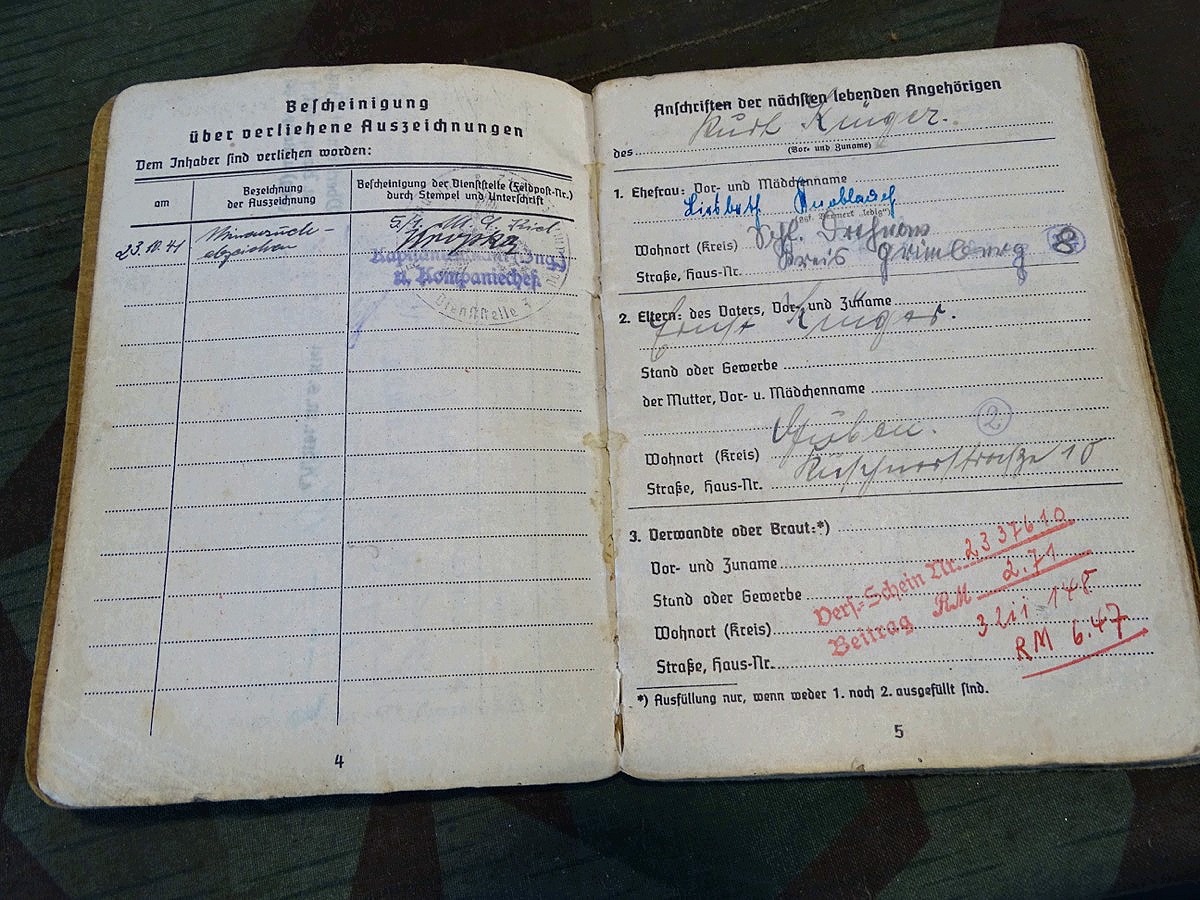 Bescheinigung
über verliehene Auszeichnungen
Dem Inhaber sind verliehen worden:
am
Bezeichnung
der Auszeichnung
Bescheinigung der Dienststelle (Feldpost-Nr.)
durch Stempel und Unterschrift
23.10.41
abzeichen
Kapitänleutnant (Ing.)
u. Kompaniechef.
Dienststelle
4
Anschriften der nächsten lebenden Angehörigen
des Kurt Krüger.
(Vor- und Zuname)
1. Ehefrau: Vor- und Mädchenname
Liesbeth
Wohnort (Kreis)
Straße, Haus-Nr. Kreis 8
2. Eltern: des Vaters, Vor- und Zuname
Ernst Krüger.
Stand oder Gewerbe
der Mutter, Vor- u. Mädchenname
Wohnort (Kreis) Guben. 2
Straße, Haus-Nr. 10
3. Verwandte oder Braut:*)
Vor- und Zuname
Stand oder Gewerbe
Wohnort (Kreis)
Straße, Haus-Nr.
Vers.-Schein Nr. 2337610
Beitrag RM 2.71
RM 6.47
*) Ausfüllung nur, wenn weder 1. noch 2. ausgefüllt sind.
5